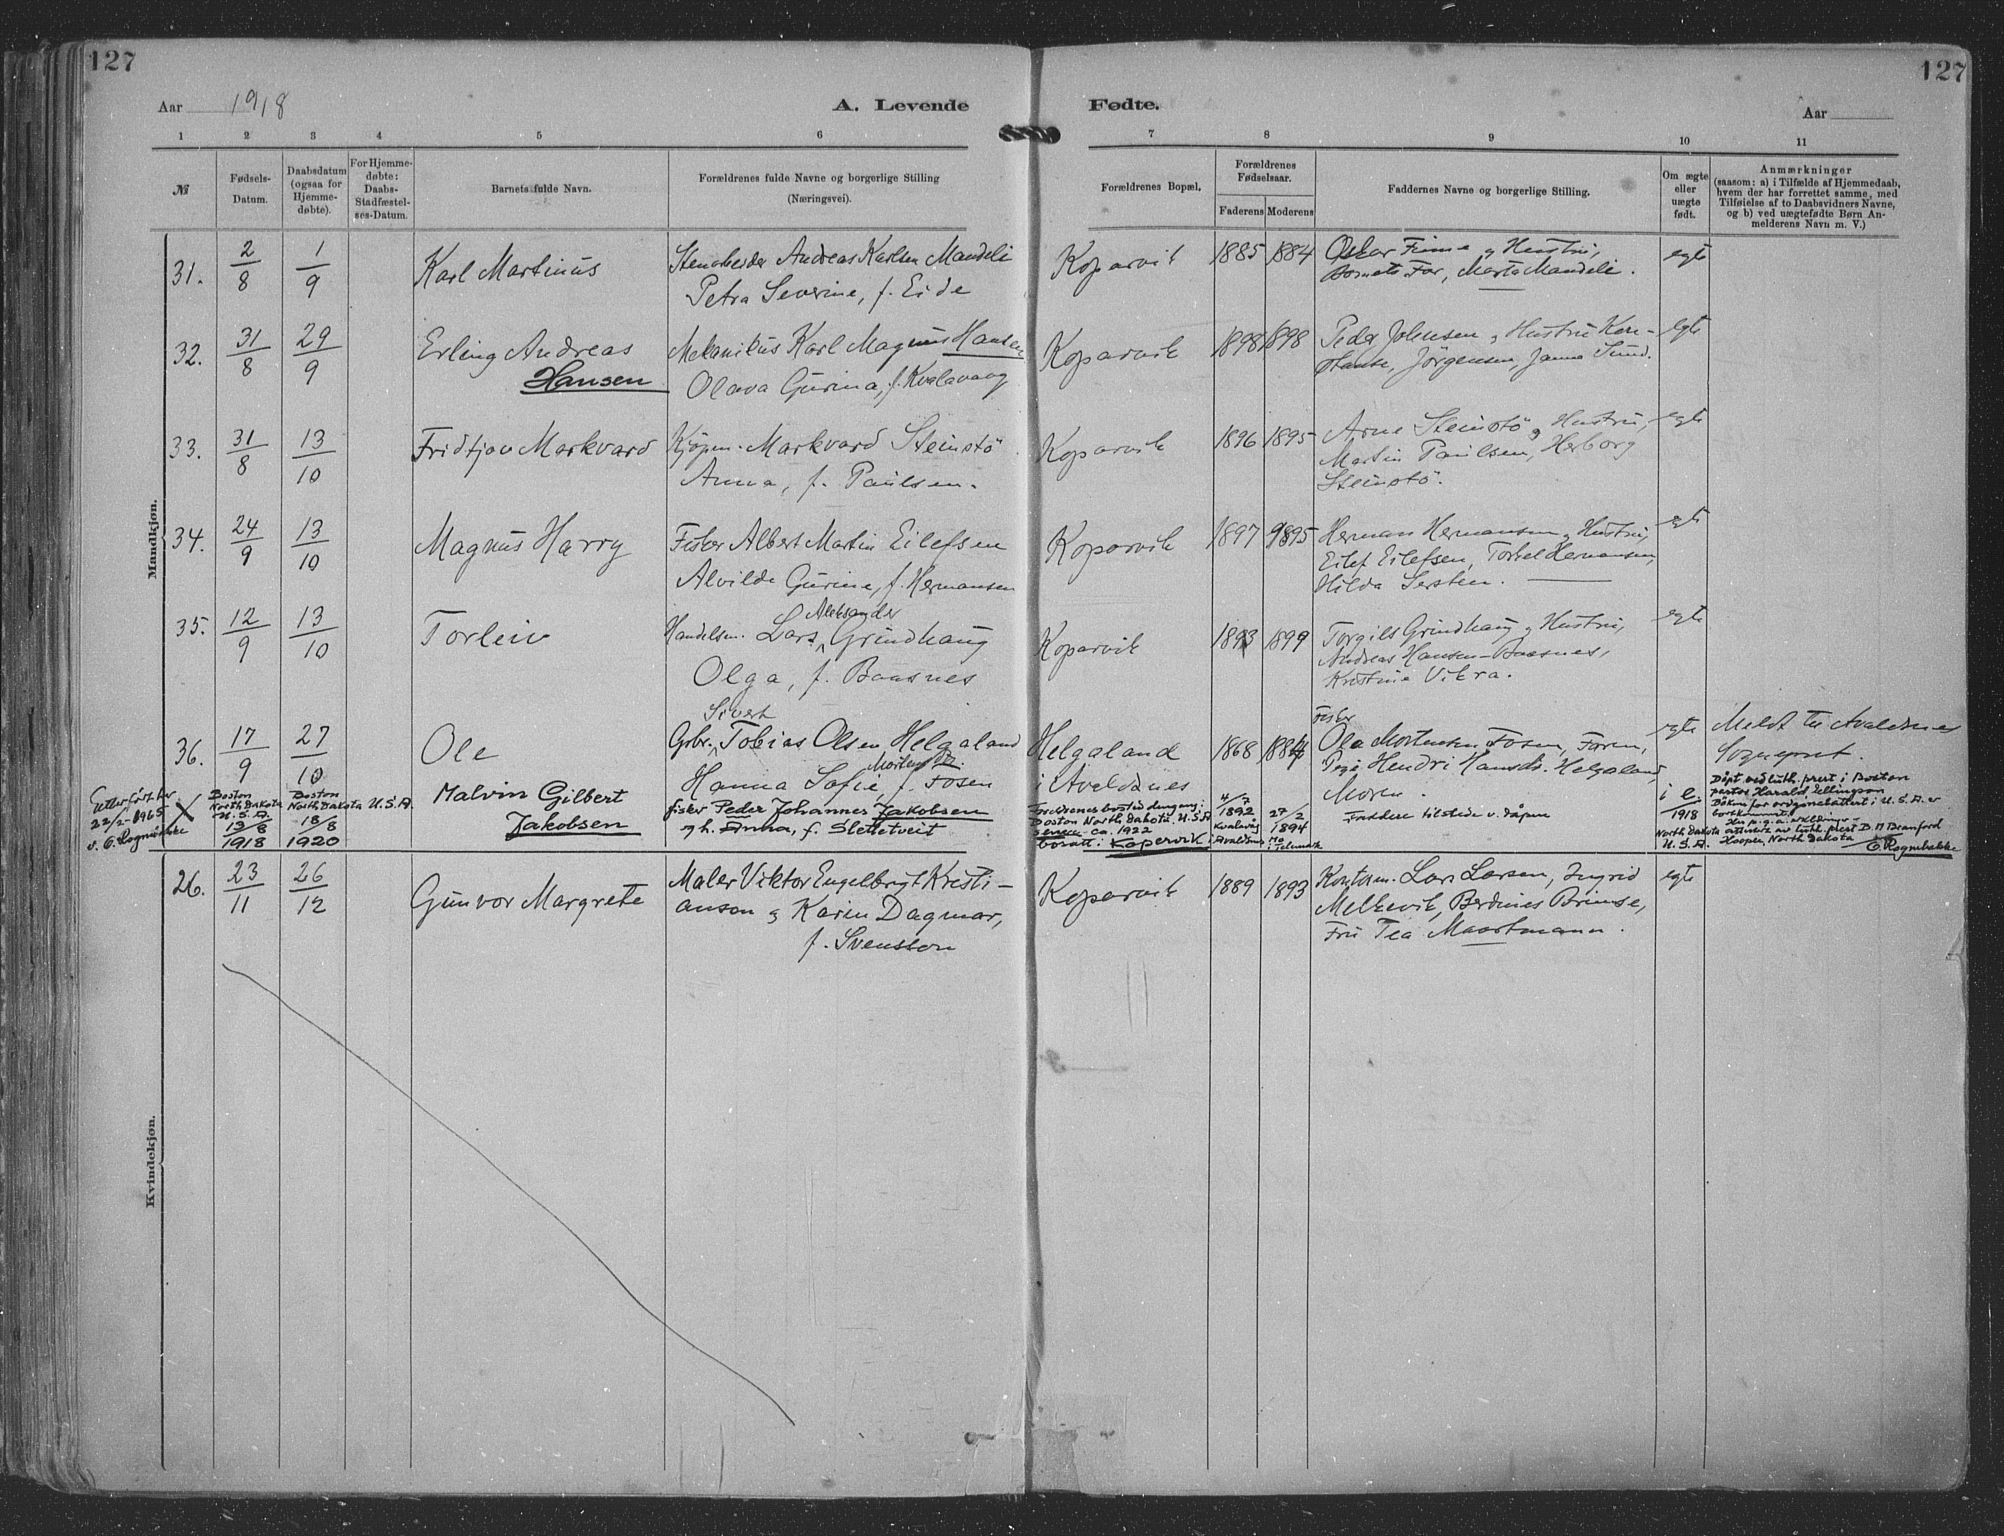 127
127
Aar 1918
A. Levende
Fødte.
Aar
1 2 3 4 5 6 7 8 9 10 11
№
Fødsels-
Datum.
Daabsdatum
(ogsaa for
Hjemme-
døbte).
For Hjemme-
døbte:
Daabs-
Stadfæstel-
ses-Datum.
Barnets fulde Navn.
Forældrenes fulde Navne og borgerlige Stilling
(Næringsvei).
Forældrenes Bopæl.
Forældrenes
Fødselsaar.
Faderens Moderens
Faddernes Navne og borgerlige Stilling.
Om ægte
eller
uægte
født.
Anmærkninger
(saasom: a) i Tilfælde af Hjemmedaab,
hvem der har forrettet samme, med
Tilføielse af to Daabsvidners Navne,
og b) ved uægtefødte Børn An-
melderens Navn m. V.)
Mandkjøn.
31. 2/8 1/9 Karl Martinus
Andreas Karlsen Mandeli
Petra Severine, f. Eide
Koparvik 1885 1884
Oskar Finne og Hustru,
Barnets Far, Marta Mandeli.
egte
32. 31/8 29/9 Erling Andreas
Hansen
Mekanikus Karl Magnus Hansen
Olava Gurina, f. Kvalavaag
Koparvik 1898 1898
Peder Johnsen og Hustru Kon-
stanse, Jörgensen, Janna Sund.
egte
33. 31/8 13/10 Fridtjov Markvard
Kjøpm. Markvard Steinstö
Anna, f. Paulsen.
Koparvik 1896 1895
Arne Steinstö og Hustru,
Martin Paulsen, Herborg
Steinstö.
egte
34. 24/9 13/10 Magnus Harry
Fisker Albert Martin Eilefsen
Alvilde Gurine, f. Hermansen
Koparvik 1897 1895
Herman Hermansen og Hustru,
Eilef Eilefsen, Torkel Hermansen,
Hilda
egte
35. 12/9 13/10 Torleiv
Aleksander
Handelsm. Lars Grindhaug
Olga, f. Baasnes
Koparvik 1893 1899
Torgils Grindhaug og Hustru,
Andreas Hansen-Baasnes,
Kristine Vikra.
egte
36. 17/9 27/10 Ole
Sivert
Gbr. Tobias Olsen Helgaland
Hanna Sofie Mortensd. f. Fosen
Helgaland
i Avaldsnes
1868 1884
Fisker
Ole Mortensen Fosen, Faren,
Pige Hendri Hansd. Helgaland
Moren.
egte
Meldt til Avaldsnes
Sogneprest.
Etterført her
22/2-1965
v. E. Rognebakke
X
Boston
North Dakota
U.S.A.
13/8
1918
Boston
North Dakota U.S.A.
18/8
1920
Malvin Gilbert
Jakobsen
fisker Peder Johannes Jakobsen
og h. Anna, f. Slettetveit
Foreldrenes bosted dengang:
Boston North Dakota, U.S.A
senere ca. 1922
bosatt i Kopervik
4/7
1892
Kvalavåg
i Avaldsnes
27/2
1894
Mo
i Telemark
Faddere tilstede v. dåpen
i e.
1918
North Dakota
U.S.A.
Døpt ved luth. prest i Boston
pastor Harald Ellingson
attestert av luth. prest B. M. Branford
Hooper, North Dakota
E. Rognebakke
Kvindekjøn.
26. 23/11 26/12 Gunvor Margrete
Maler Viktor Engelbrygt Kristi-
anson og Karin Dagmar,
f. Svensson
Koparvik 1889 1893
Kontorm. Lars Larsen, Ingrid
Melkevik, Berdines Brimse,
Fru Tea Maartmann.
egte